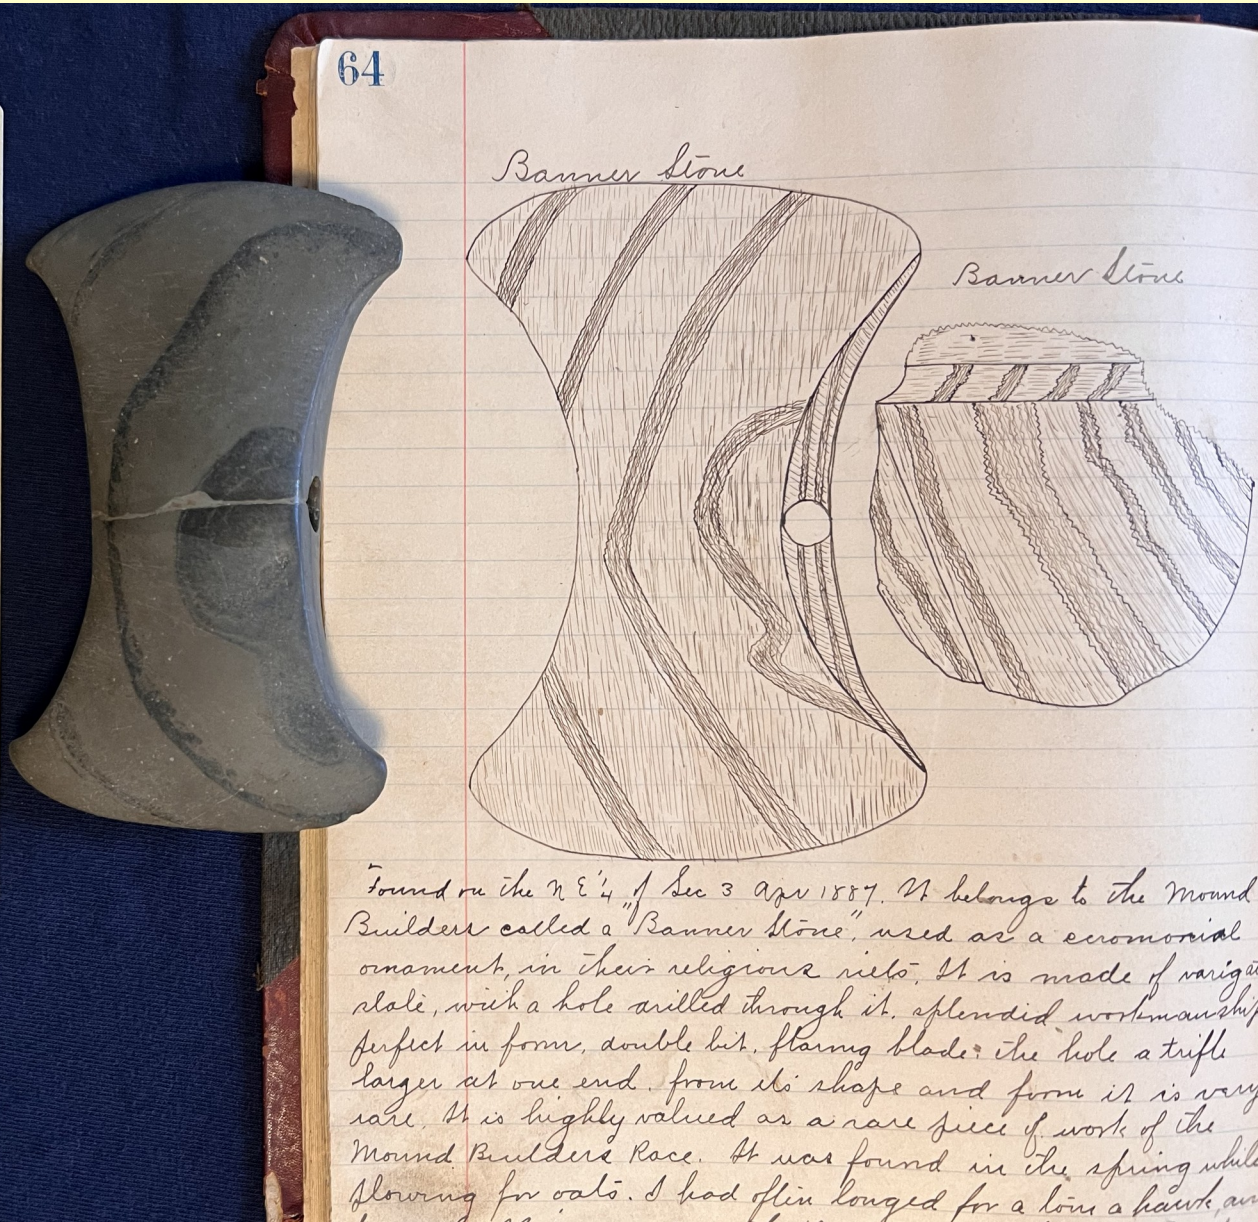 64
Banner Stone
Banner Stone
Found on the N E ¼ of Sec 3 Apr 1887. It belongs to the Mound
Builders called a "Banner Stone", used as a ceromonial
ornament, in their religious riets. It is made of
slate, with a hole drilled through it. splendid
perfect in form, double bit, flaring blade; the hole a trifle
larger at one end. from its shape and form it is very
rare. It is highly valued as a rare piece of work of the
Mound Builders Race. It was found in the spring while
plowing for oats. I had often longed for a tom a hawk,